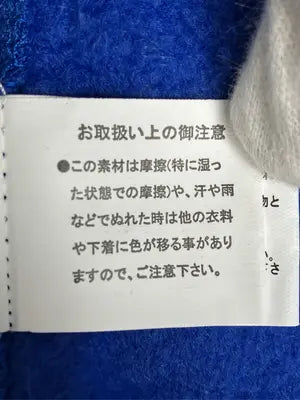 お取扱い上の御注意
●この素材は摩擦(特に湿っ
た状態での摩擦)や、汗や雨
などでぬれた時は他の衣料
や下着に色が移る事があり
ますので、ご注意下さい。